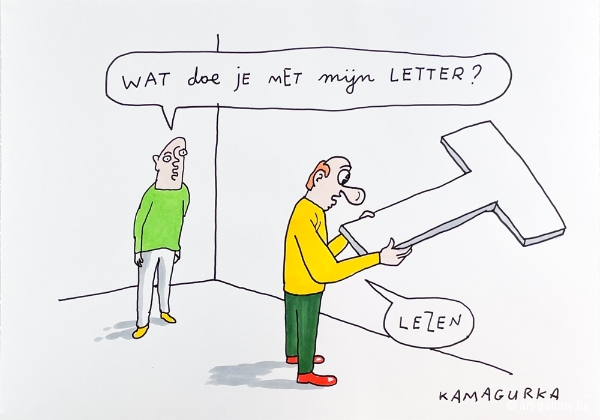 WAT doe JE MET mijn LETTER?
T
LEZEN
KAMAGURKA